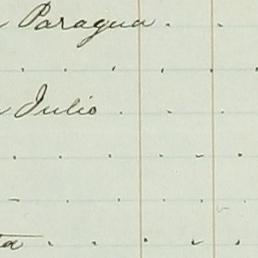 Paragua
Julio